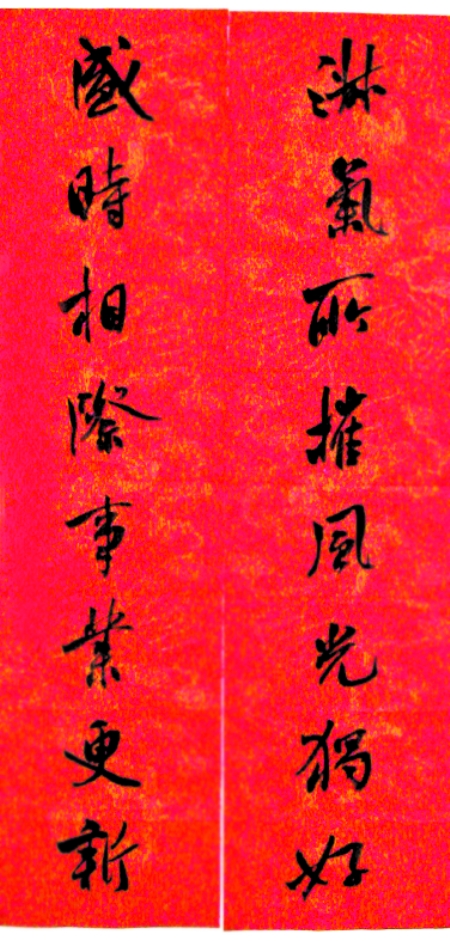 淑氣所摧風光獨好
盛時相際事業更新